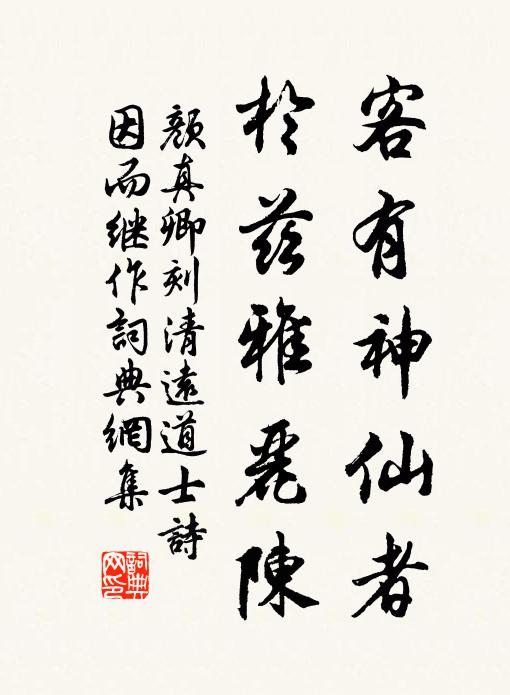 客有神仙者
於兹雅麗陳
顔真卿刻清遠道士詩
因而継作詞典網集
詞典
網印